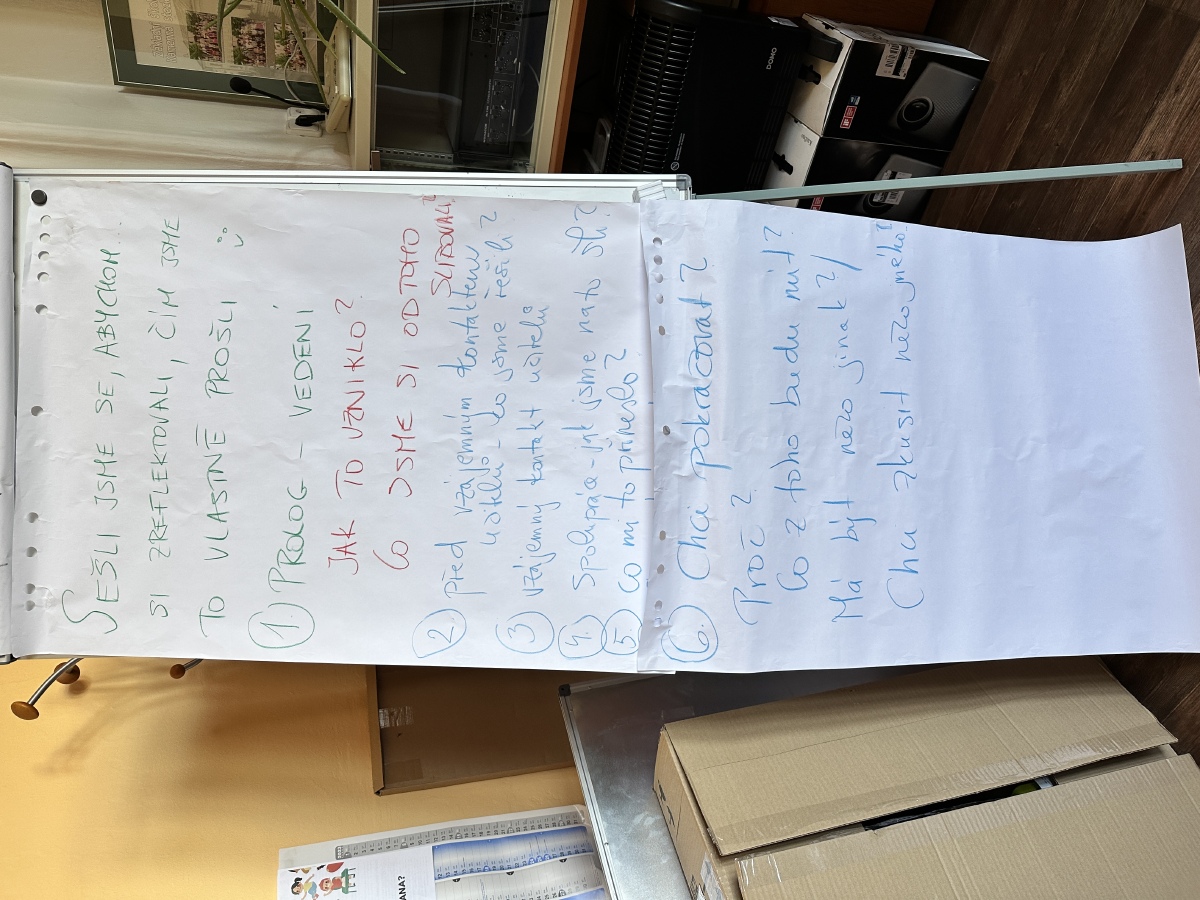 SEŠLI JSME SE, ABYCHOM...
SI ZREFLEKTOVALI, ČÍM JSME
TO VLASTNĚ PROŠLI
1. PROLOG - VEDENÍ
JAK TO VZNIKLO?
CO JSME SI OD TOHO
SLIBOVALI?
2 před vzájemným kontaktem
učitelů - co jsme řešili?
3 vzájemný kontakt učitelů
4. Spolupráce - jak jsme na to šli?
5. Co mi to přineslo?
6. Chci pokračovat?
Proč?
Co z toho budu mít?
Má být něco jinak?
Chci zkusit něco jiného?
DOMO
ANA?